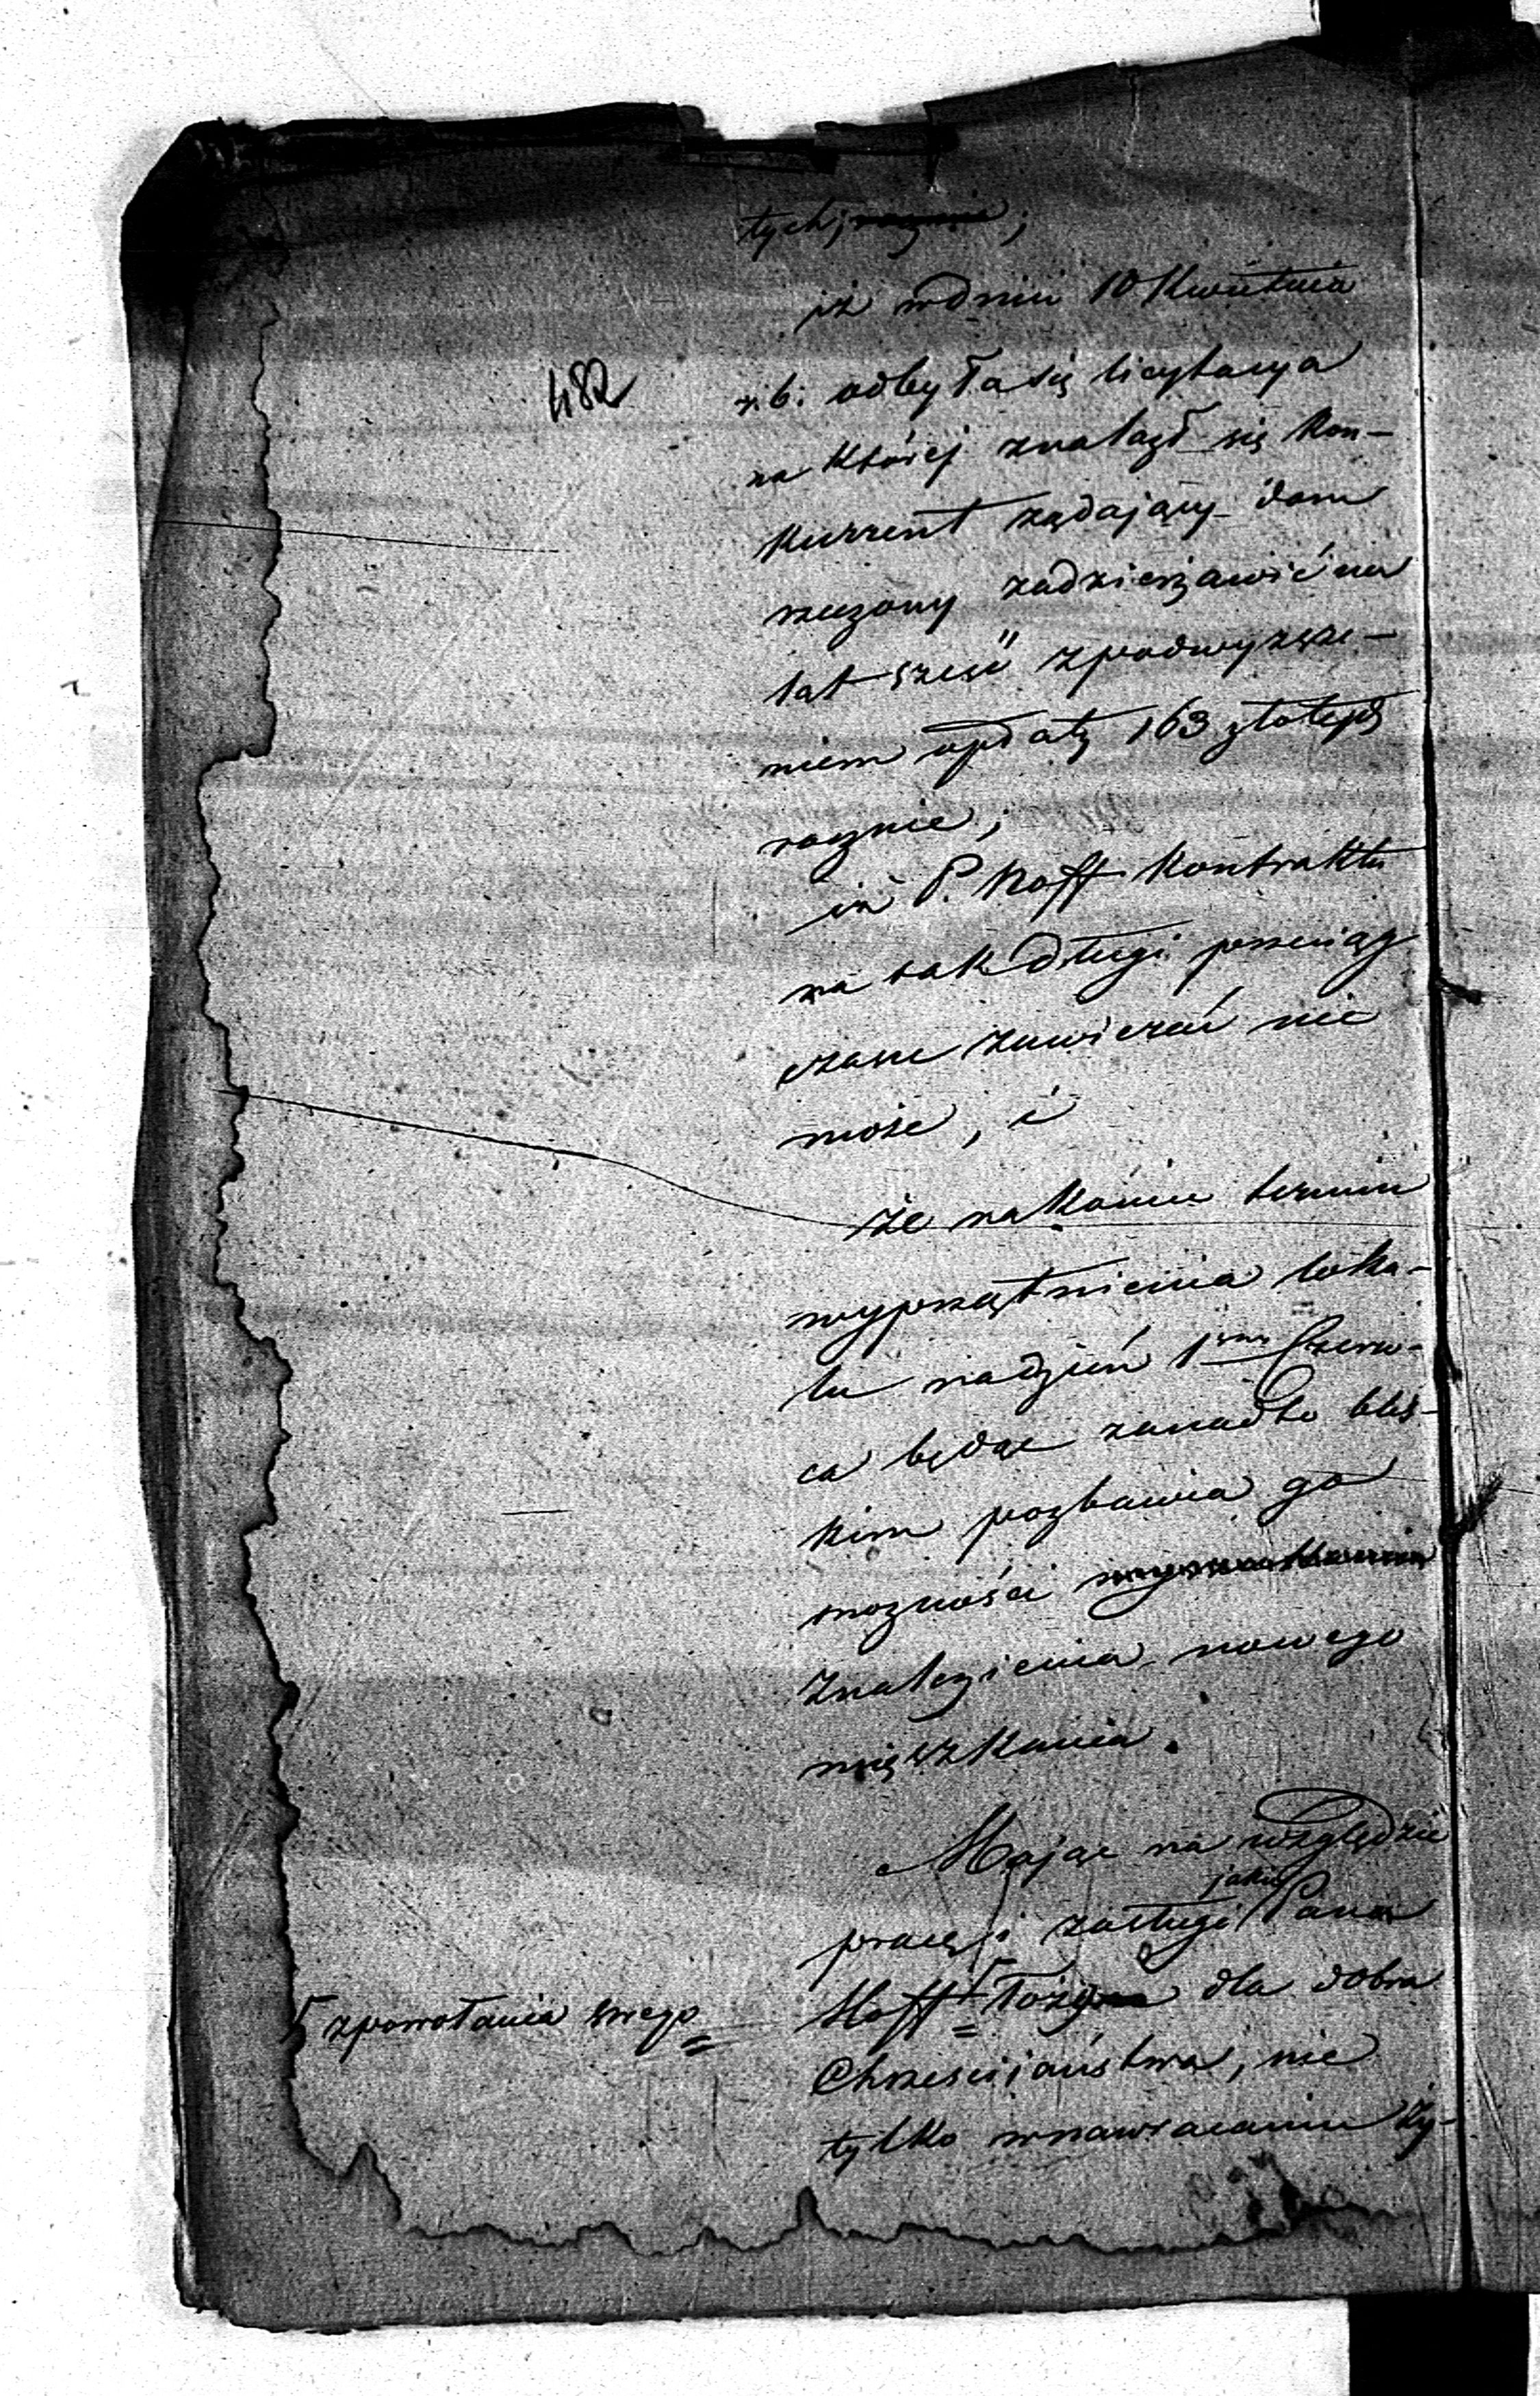 tych;
iż wdniu 10 Kwietnia
482
r. b. odbyła się licytacya
na której znalazł się Kon-
kurrent żądający dom
rzeczony zadzierżawić na
lat sześć z podwyższe-
niem opłaty 163 złotych
rocznie;
iż P. Hoff Kontraktu
na tak długi przeciąg
czasu zawierać nie
może, i
że nakoniec termin
wyprzątnienia loka-
lu nadzień 1 Czerw-
ca będąc zanadto blis-
kim pozbawia go
możności
znalezienia nowego
mięszkania.
Mając na względzie
pracę i zasługi jakie Pan
Hoff łoży dla dobra
zpowołania swego
Chrześcijaństwa, nie
tylko wnawracaniu Ży-